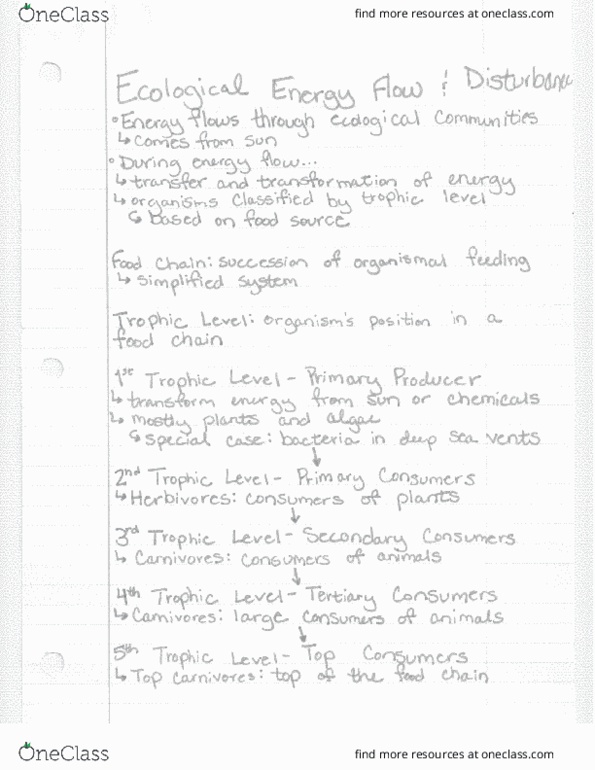 OneClass
find more resources at oneclass.com
Ecological Energy Flow & Disturbance
•Energy flows through ecological communities
↳ Comes from sun
•During energy flow...
↳ transfer and transformation of energy
↳ organisms classified by trophic level
↳ based on food source
Food Chain: succession of organismal feeding
↳ Simplified system
Trophic Level: organism's position in a
food chain
1st Trophic Level - Primary Producer
↳ transform energy from sun or chemicals
↳ mostly plants and algae
↳ special case: bacteria in deep sea vents
↓
2nd Trophic Level - Primary Consumers
↳ Herbivores: consumers of plants
↓
3rd Trophic Level - Secondary Consumers
↳ Carnivores: consumers of animals
↓
4th Trophic Level - Tertiary Consumers
↳ Carnivores: large consumers of animals
↓
5th Trophic Level - Top Consumers
↳ Top Carnivores: top of the food chain
OneClass
find more resources at oneclass.com